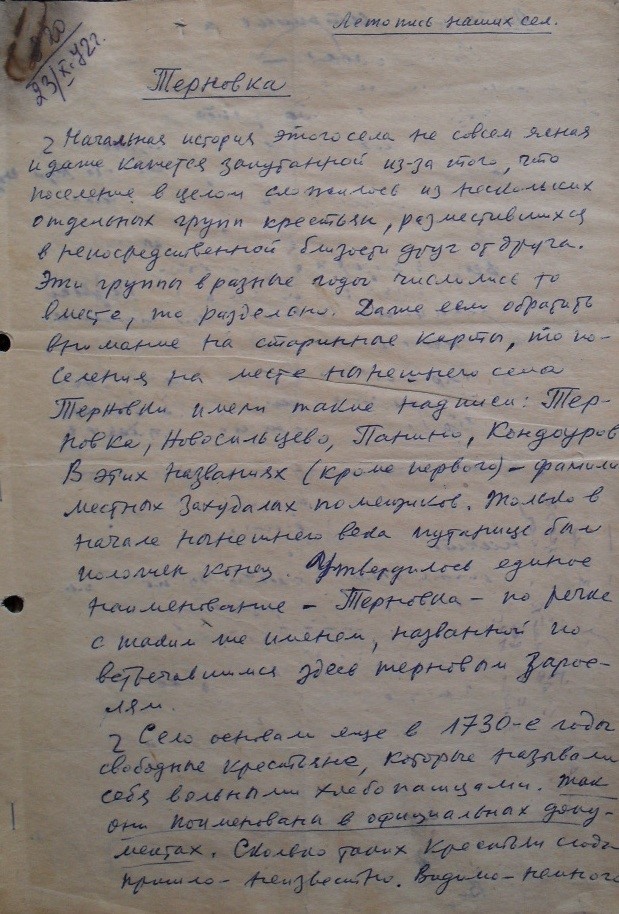 Летопись наших сел.
23/XI-72г.
Терновка
Начальная история этого села не совсем ясная
и даже кажется запутанной из-за того, что
поселение в целом сложилось из нескольких
отдельных групп крестьян, разместившихся
в непосредственной близости друг от друга.
Эти группы в разные годы числились то
вместе, то раздельно. Даже если обратить
внимание на старинные карты, то по-
селения на месте нынешнего села
Терновки имели такие надписи: Тер-
новка, Новосильцево, Панино, Кондоуров
В этих названиях (кроме первого) – фамили
местных захудалых помещиков. Только в
начале нынешнего века путанице был
положен конец. Утвердилось единое
наименование – Терновка – по речке
с таким же именем, названной по
встречавшимся здесь терновым зарос-
лям.
Село основали еще в 1730-е годы
свободные крестьяне, которые называли
себя вольными хлебопашцами. Так
они поименованы в официальных доку-
ментах. Сколько таких крестьян сюда
пришло – неизвестно. Видимо – немного